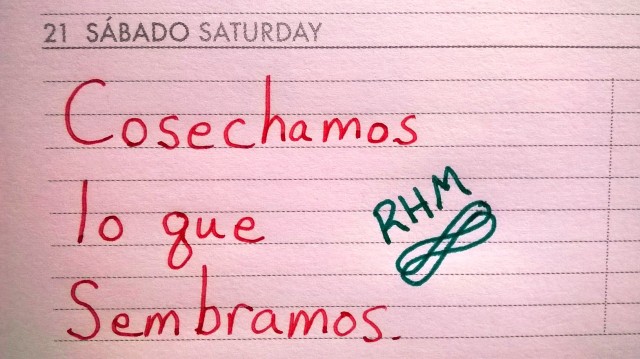 21 SÁBADO SATURDAY
Cosechamos
lo que
RHM
Sembramos.